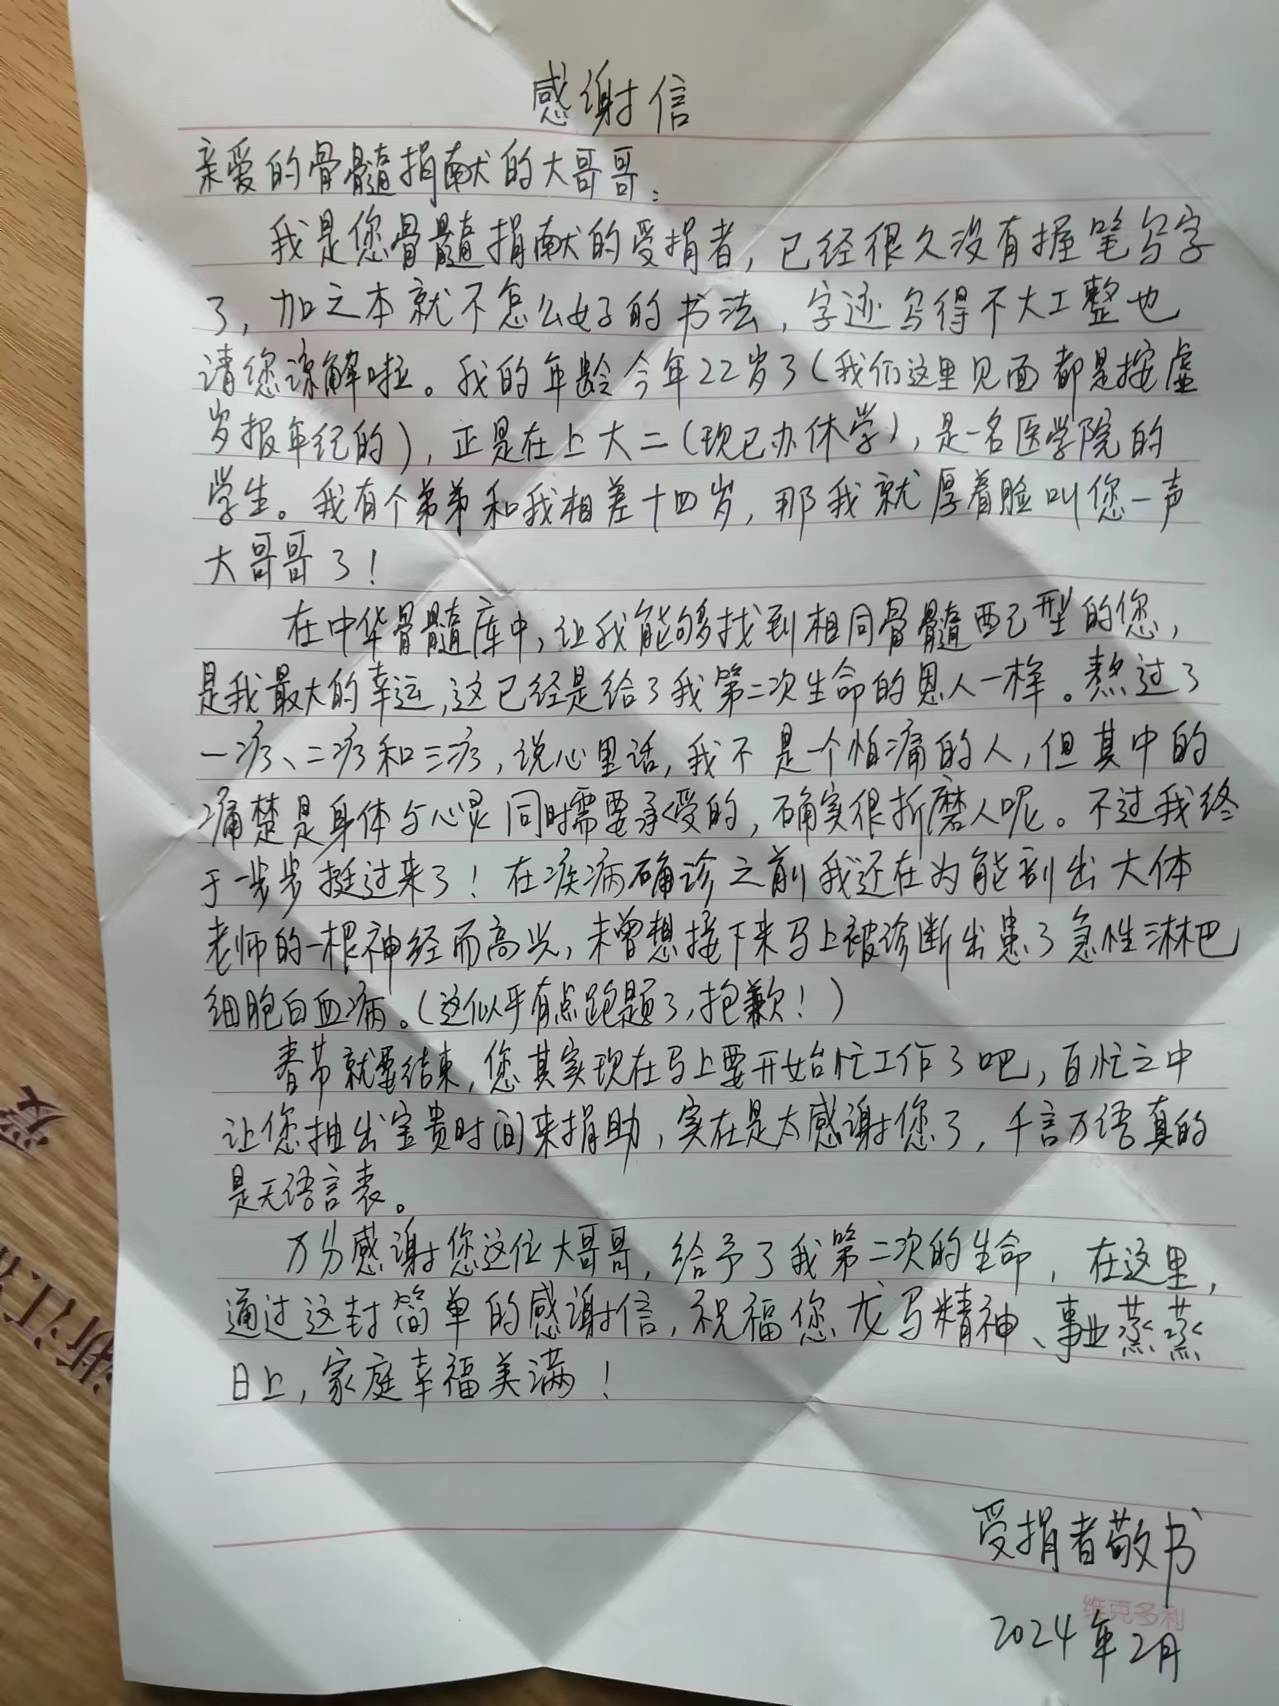 感谢信
亲爱的骨髓捐献的大哥哥：
我是您骨髓捐献的受捐者，已经很久没有握笔写字
了，加之本就不怎么好的书法，字迹写得不大工整也
请您谅解啦。我的年龄今年22岁了（我们这里见面都是按虚
岁报年纪的），正是在上大二（现已办休学），是一名医学院的
学生。我有个弟弟和我相差十四岁，那我就厚着脸叫您一声
大哥哥了！
在中华骨髓库中，让我能够找到相同骨髓配型的您，
是我最大的幸运，这已经是给了我第二次生命的恩人一样。熬过了
一疗、二疗和三疗，说心里话，我不是一个怕痛的人，但其中的
痛楚是身体与心灵同时需要承受的，确实很折磨人呢。不过我终
于一步步挺过来了！在疾病确诊之前我还在为能剖出大体
老师的一根神经而高兴，未曾想接下来马上被诊断出患了急性淋巴
细胞白血病。（这似乎有点跑题了，抱歉！）
春节就要结束，您其实现在马上要开始忙工作了吧，百忙之中
让您抽出宝贵时间来捐助，实在是太感谢您了，千言万语真的
是无语言表。
万分感谢您这位大哥哥，给予了我第二次的生命，在这里，
通过这封简单的感谢信，祝福您龙马精神、事业蒸蒸
日上，家庭幸福美满！
受捐者敬书
维克多利
2024年2月
爱
浙江